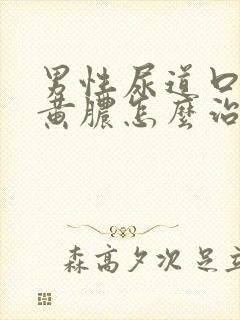 男性尿道口
黄膿怎麼治
森高夕次 足立